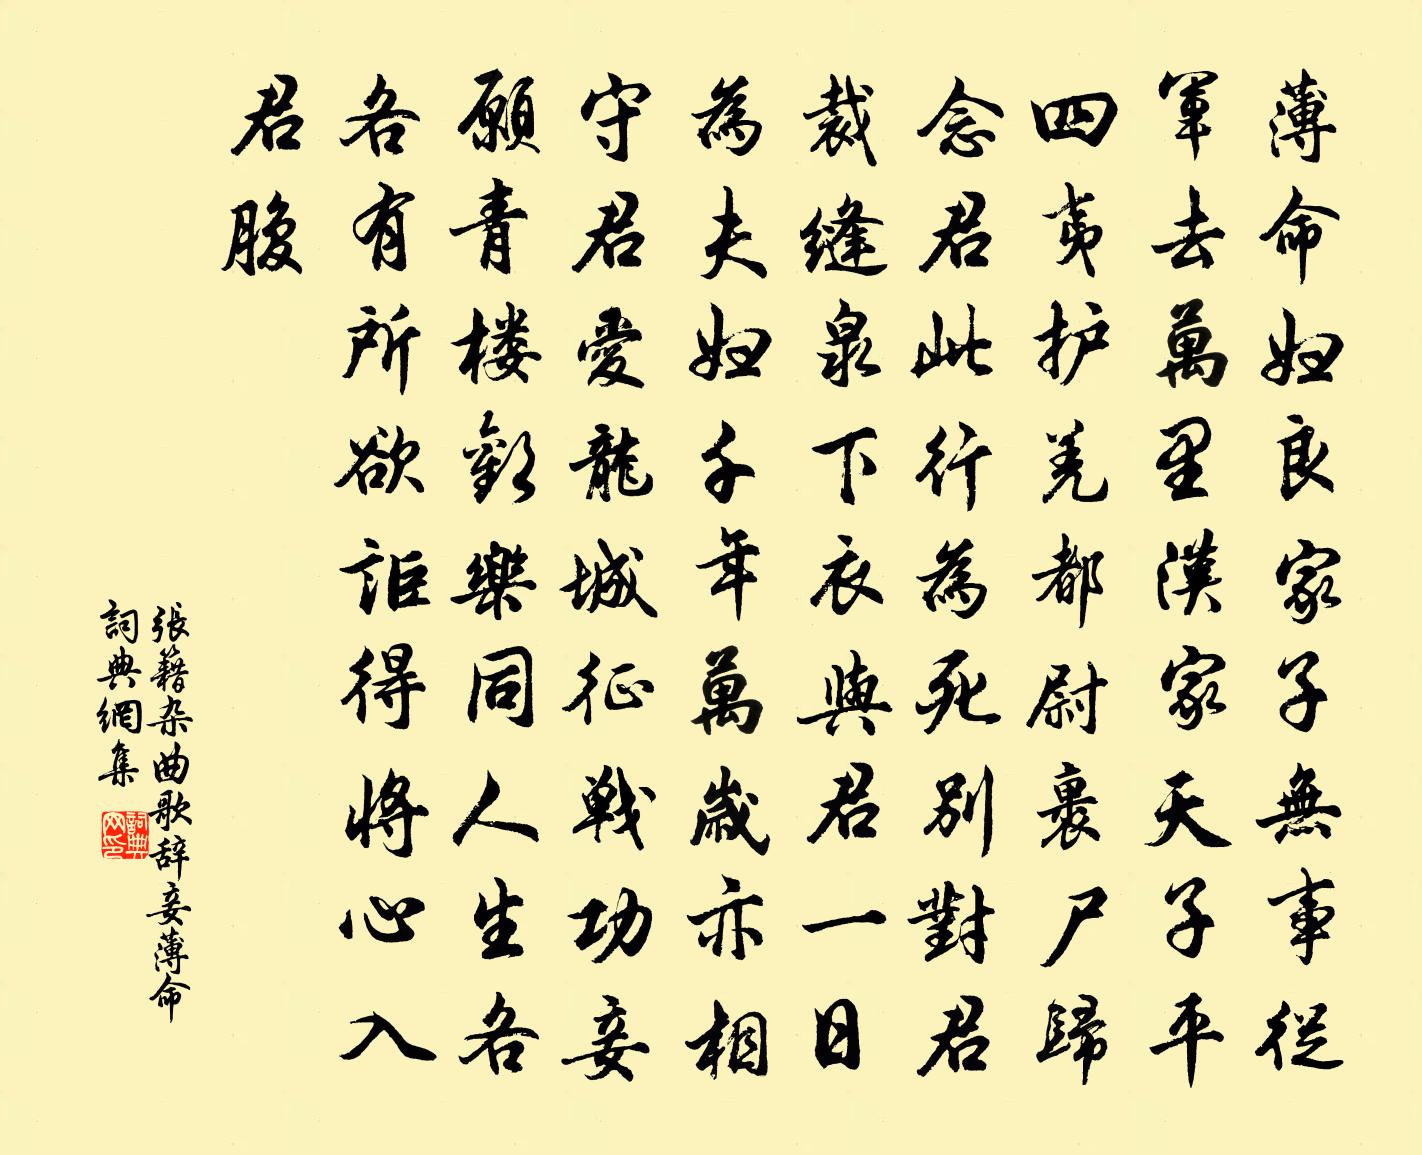 薄命妇良家子無事從
軍去萬里漢家天子平
四夷护羌都尉裹尸歸
念君此行為死别對君
裁縫泉下衣與君一日
為夫妇千年萬歲亦相
守君愛龍城征戰功妾
願青楼歡樂同人生各
各有所欲詎得將心入
君腹
張籍杂曲歌辞妾薄命
詞典網集
詞典
网印